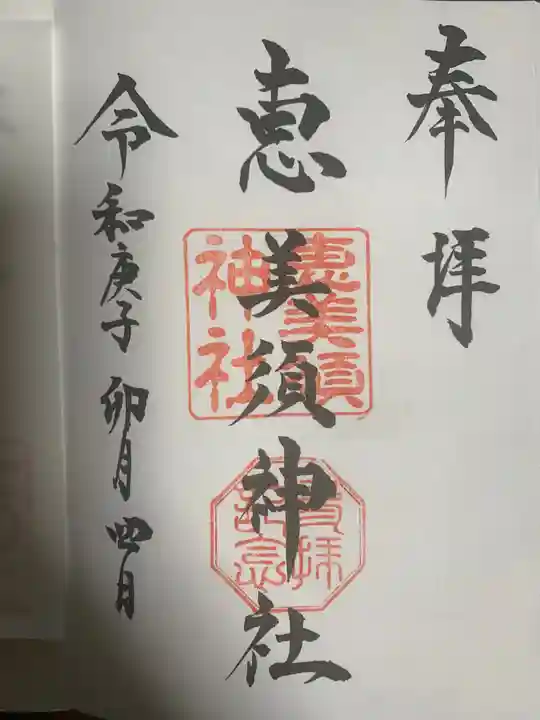 奉拝
恵美須神社
恵美須
神社
令和庚子卯月四月